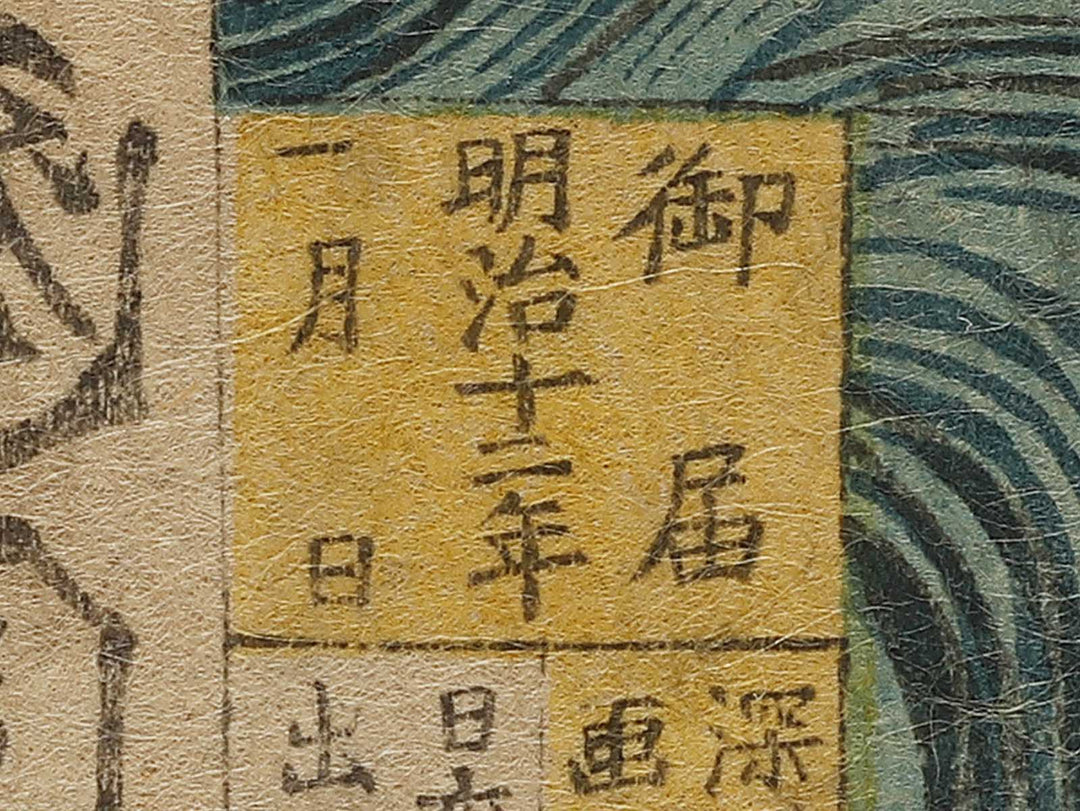 御届
明治十二年
一月　日
深
画
日本
出